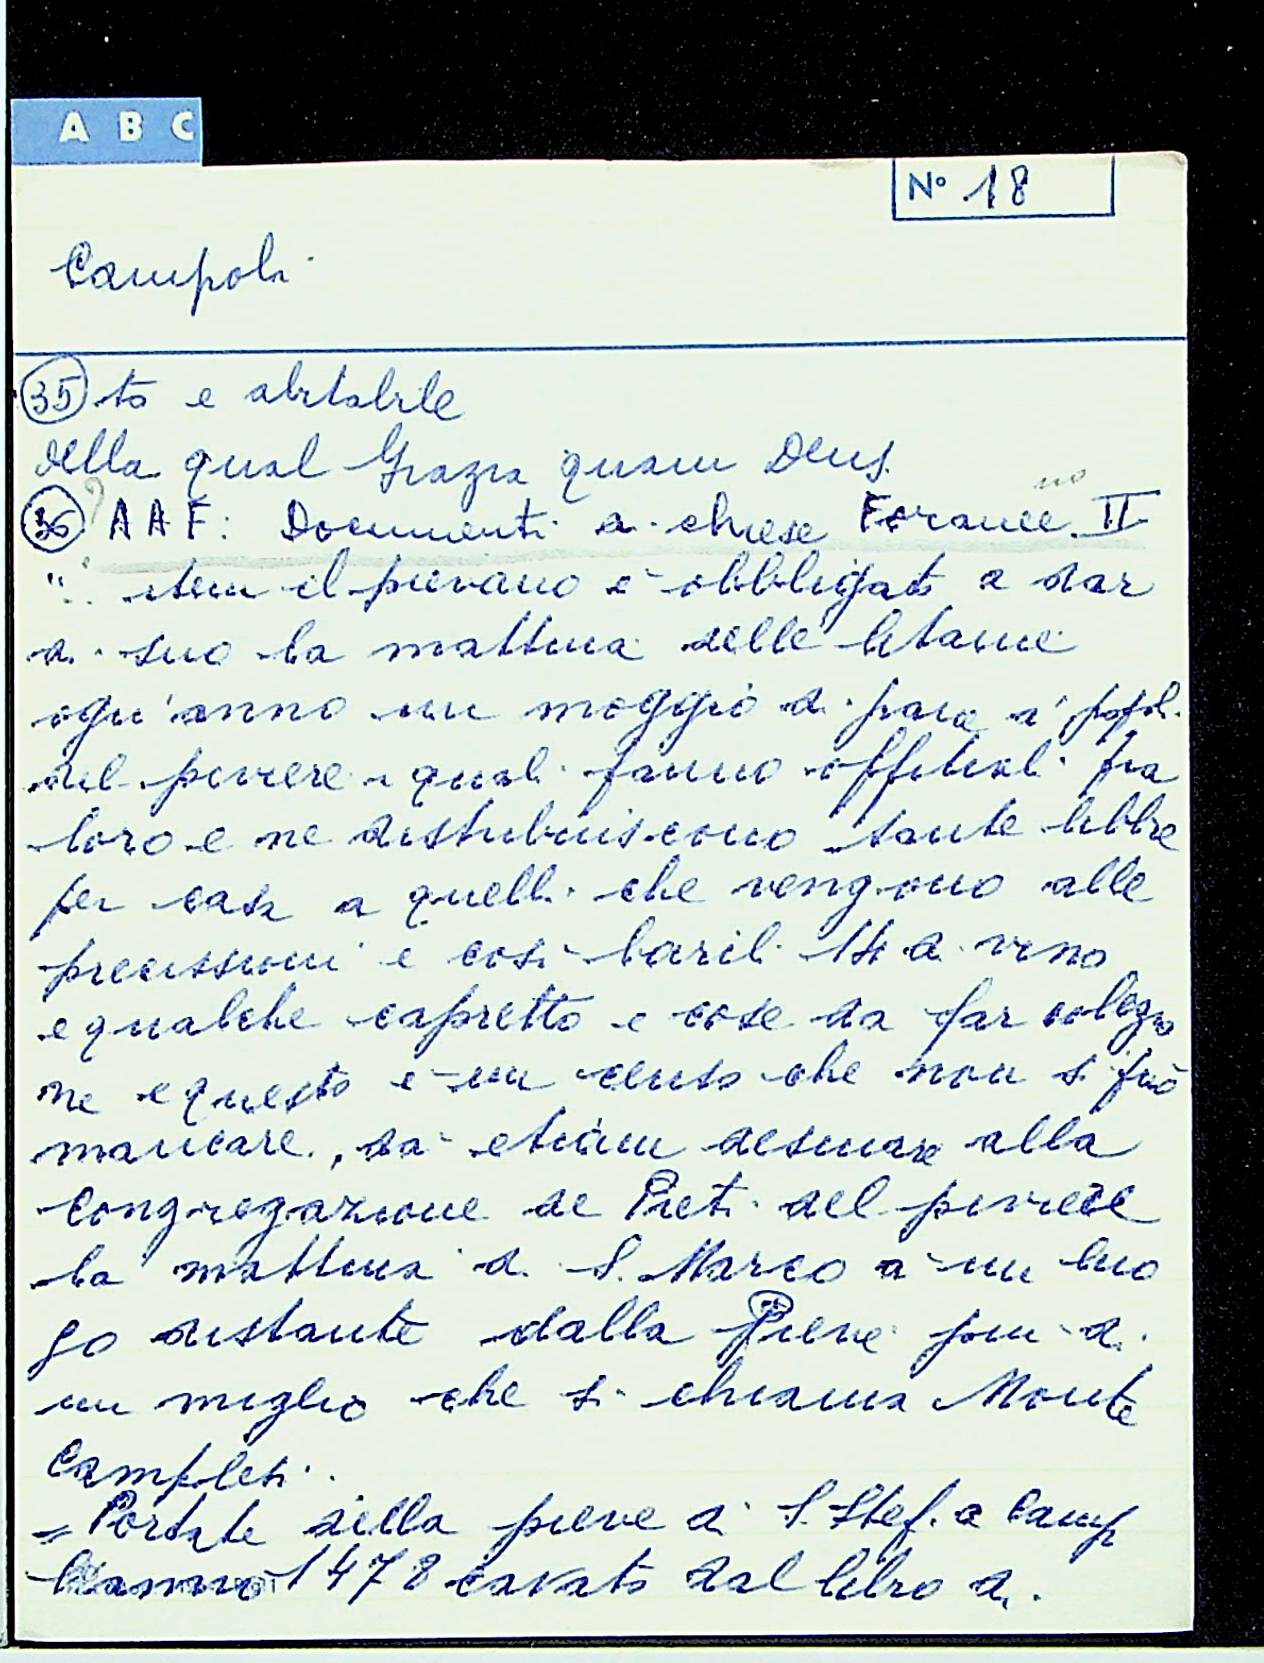 A B C
Nº 18
Campoli
35 to e abitabile
della qual Grazia quam Deus
no
36 AAF: Documenti di chiese Foranee II
"... item il pievano è obbligato a dar
di suo la mattina delle letanie
ogn'anno un moggio di pane a' popoli
del piviere i quali fanno offitiali fra
loro e ne distribuiscono tante libbre
per casa a quelli che vengono alle
precissioni e così barili 14 di vino
e qualche capretto e cose da far colezio
ne e questo è un censo che non si può
mancare, dà etiam desinare alla
congregazione de Preti del piviere
la mattina di S. Marco a un luo
go distante dalla Pieve più di
un miglio che si chiama Monte
Campolesi.
= Portate della pieve di S. Stef. a Camp
l'anno 1478 cavato dal libro di